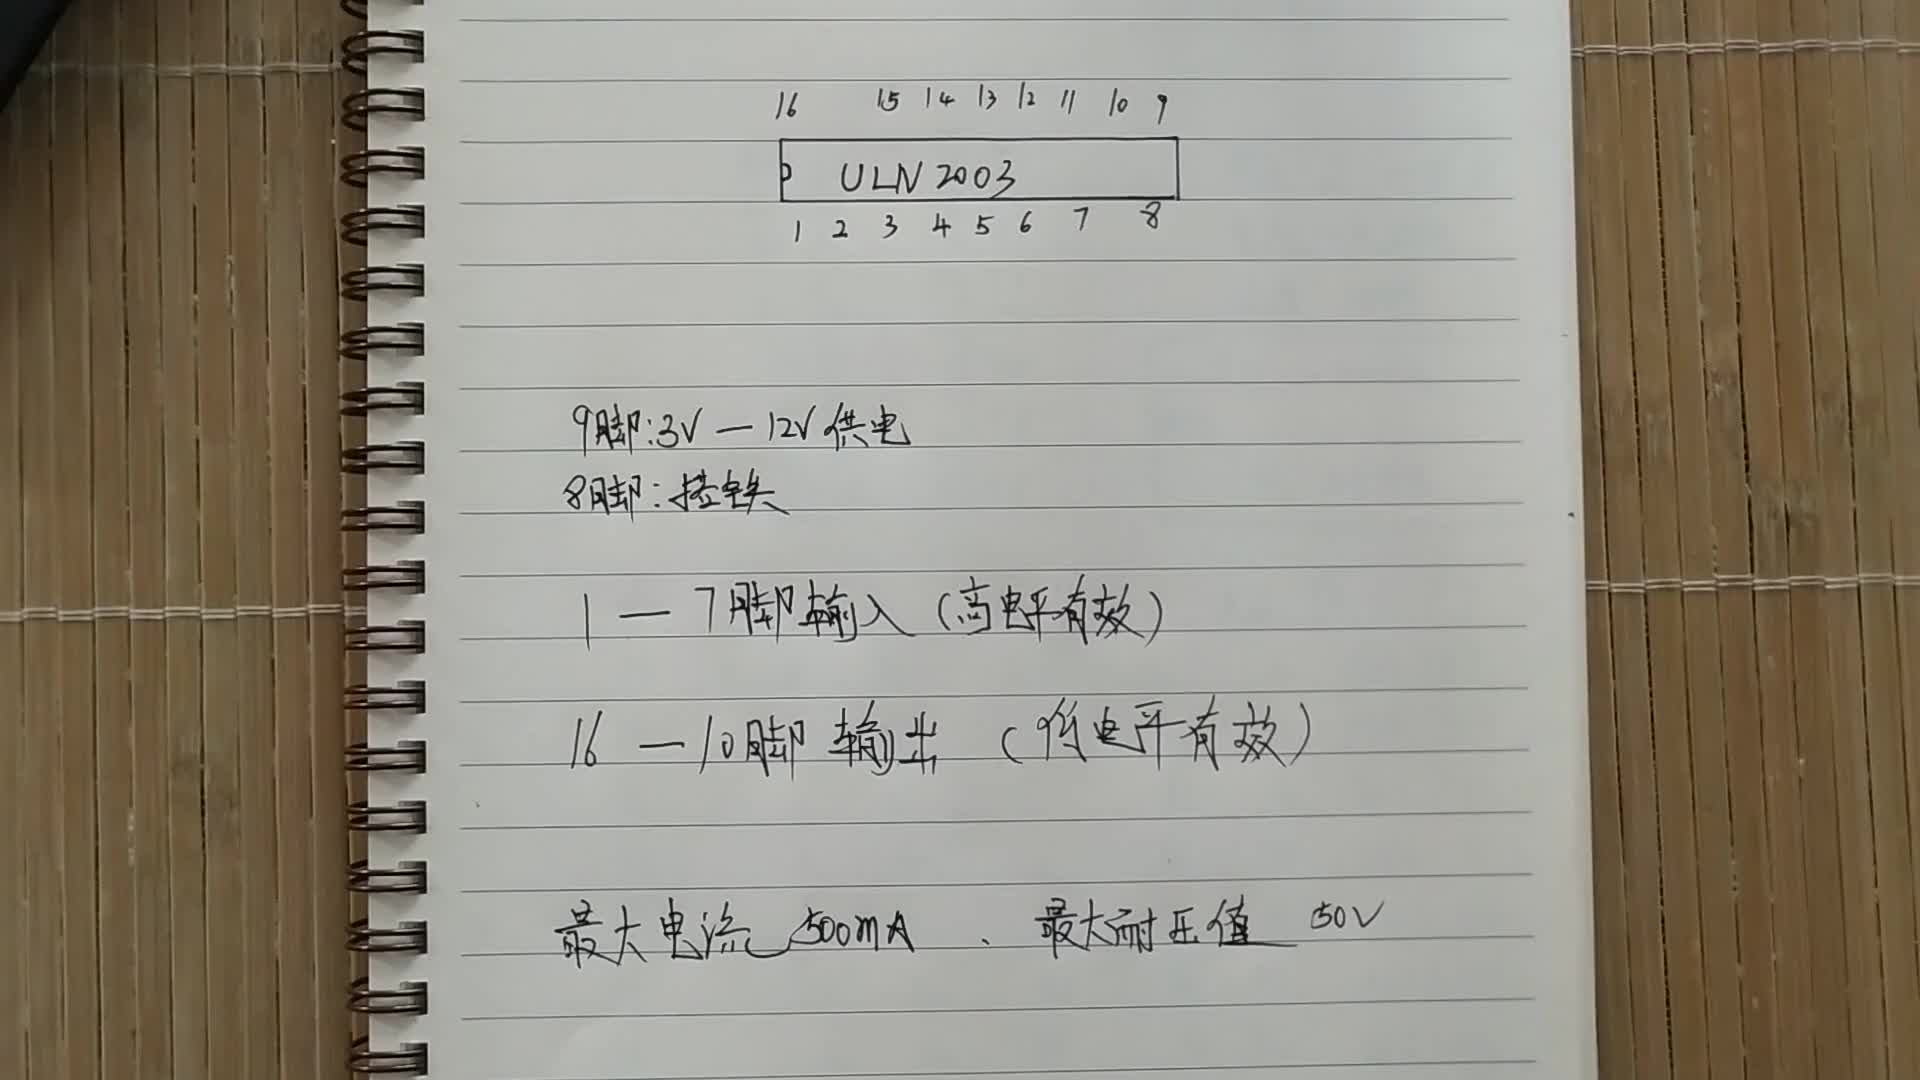 16 15 14 13 12 11 10 9
ULN2003
1 2 3 4 5 6 7 8
9脚:3V—12V供电
8脚:搭铁
1—7脚输入(高电平有效)
16—10脚 输出 (低电平有效)
最大电流 500mA 、最大耐压值 50V